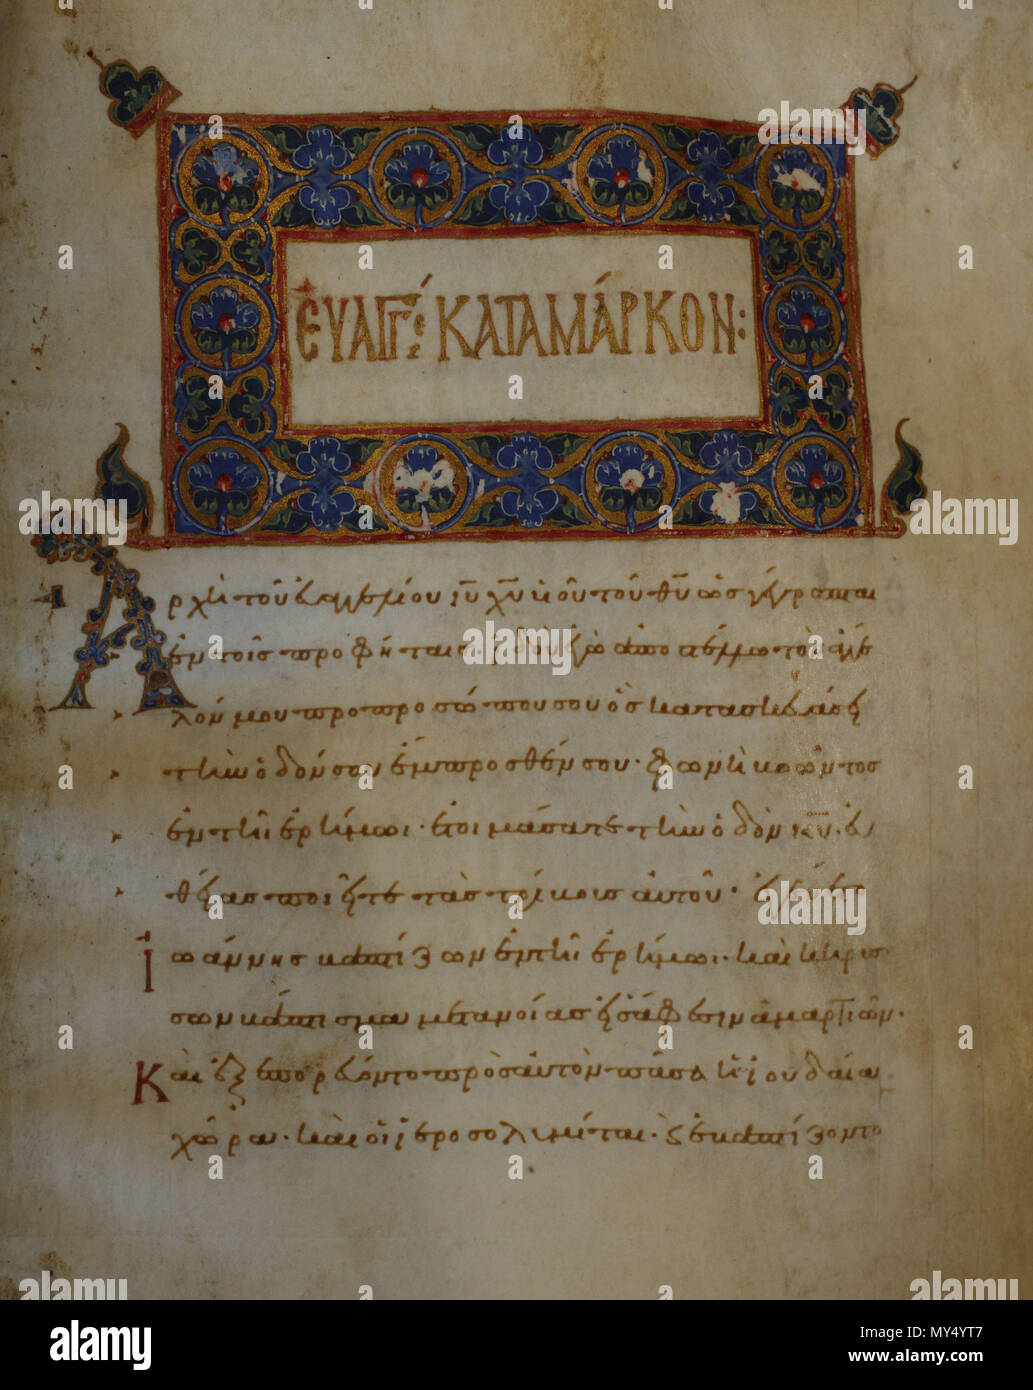 ΕΥΑΓΓΕ ΚΑΤΑ ΜΑΡΚΟΝ:
Ἀρχὴ τοῦ εὐαγγελίου ἰῦ χῦ υἱοῦ τοῦ θῦ ὡς γέγραπται
ἐν τοῖς προφήταις. ἰδοὺ ἐγὼ ἀποστέλλω τὸν ἄγγε
λόν μου πρὸ προσώπου σου ὃς κατασκευάσει
τὴν ὁδόν σου ἔμπροσθέν σου· φωνὴ βοῶντος
ἐν τῆι ἐρήμωι· ἑτοιμάσατε τὴν ὁδὸν κῦ· εὐ
θείας ποιεῖτε τὰς τρίβους αὐτοῦ· ἐγένετο
Ἰωάννης βαπτίζων ἐν τῆι ἐρήμωι· καὶ κηρύσ
σων βάπτισμα μετανοίας εἰς ἄφεσιν ἁμαρτιῶν.
Καὶ ἐξεπορεύοντο πρὸς αὐτὸν πᾶσα ἡ ἰουδαία
χώρα· καὶ οἱ ἱεροσολυμῖται· ϗ ἐβαπτίζοντο
alamy
Image ID: MY4YT7
www.alamy.com